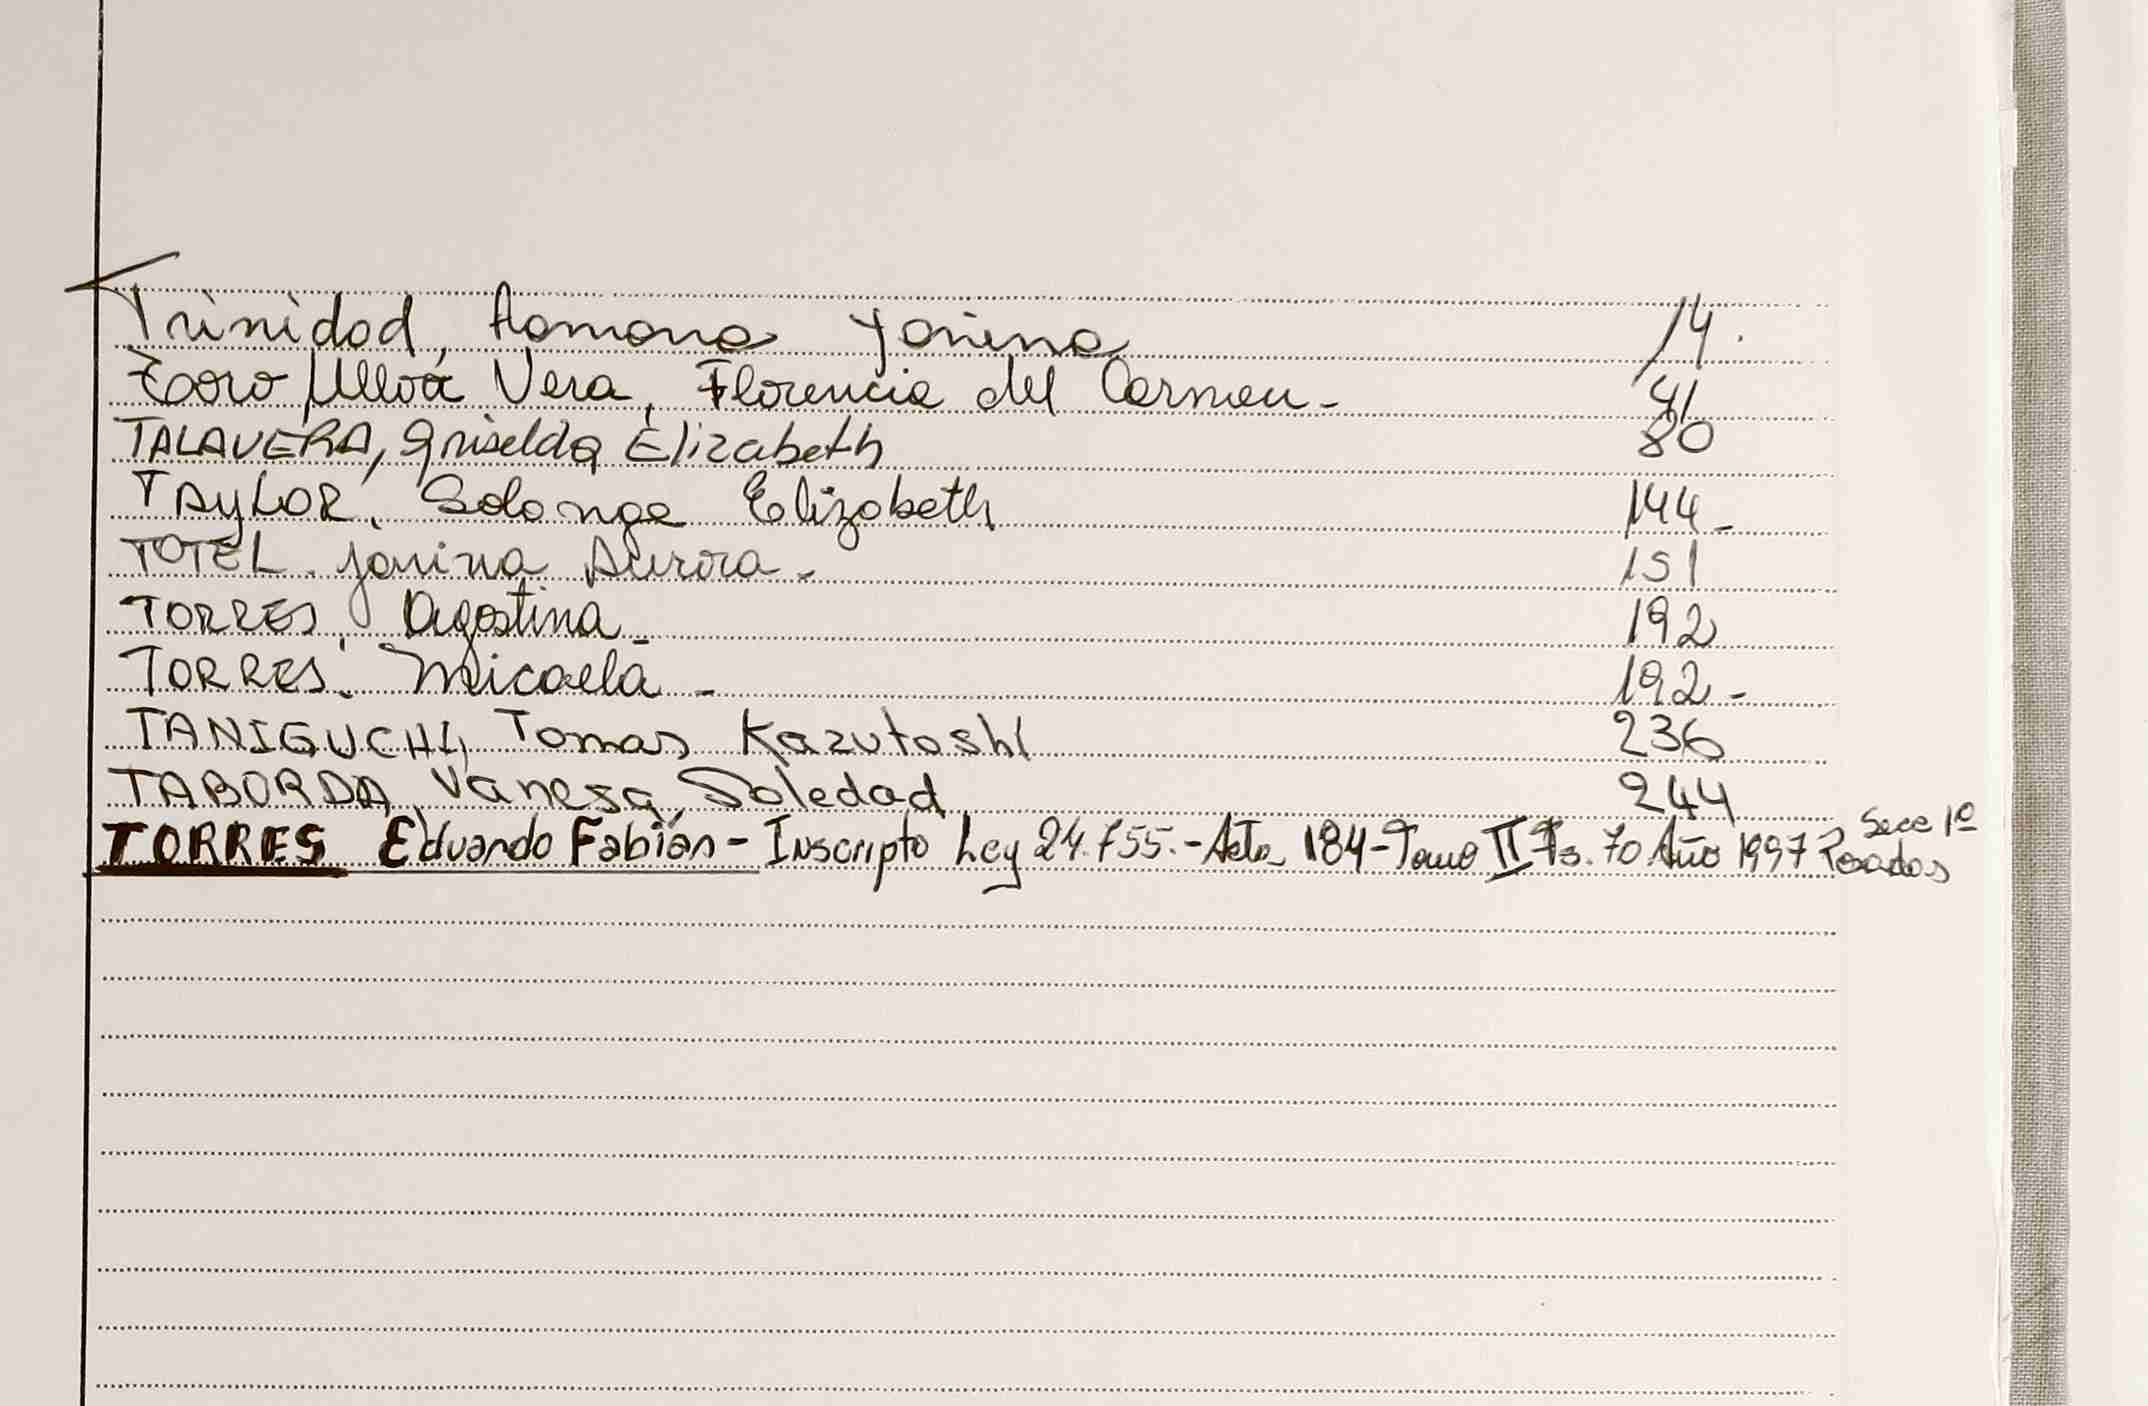 Trinidad, Ramona Yanina 14.
Toro Ulloa Vera, Florencia del Carmen - 41
TALAVERA, Griselda Elizabeth 80
TAYLOR, Solange Elizabeth 144-
TOTEL. Yanina Aurora - 151
TORRES, Agostina - 192
TORRES, Micaela - 192-
TANIGUCHI, Tomas Kazutoshi 236
TABORDA, Vanesa Soledad 244
TORRES Eduardo Fabián - Inscripto Ley 24.755.- Acta 184 - Tomo II Fs. 70 Año 1997 Secc 1º Posadas